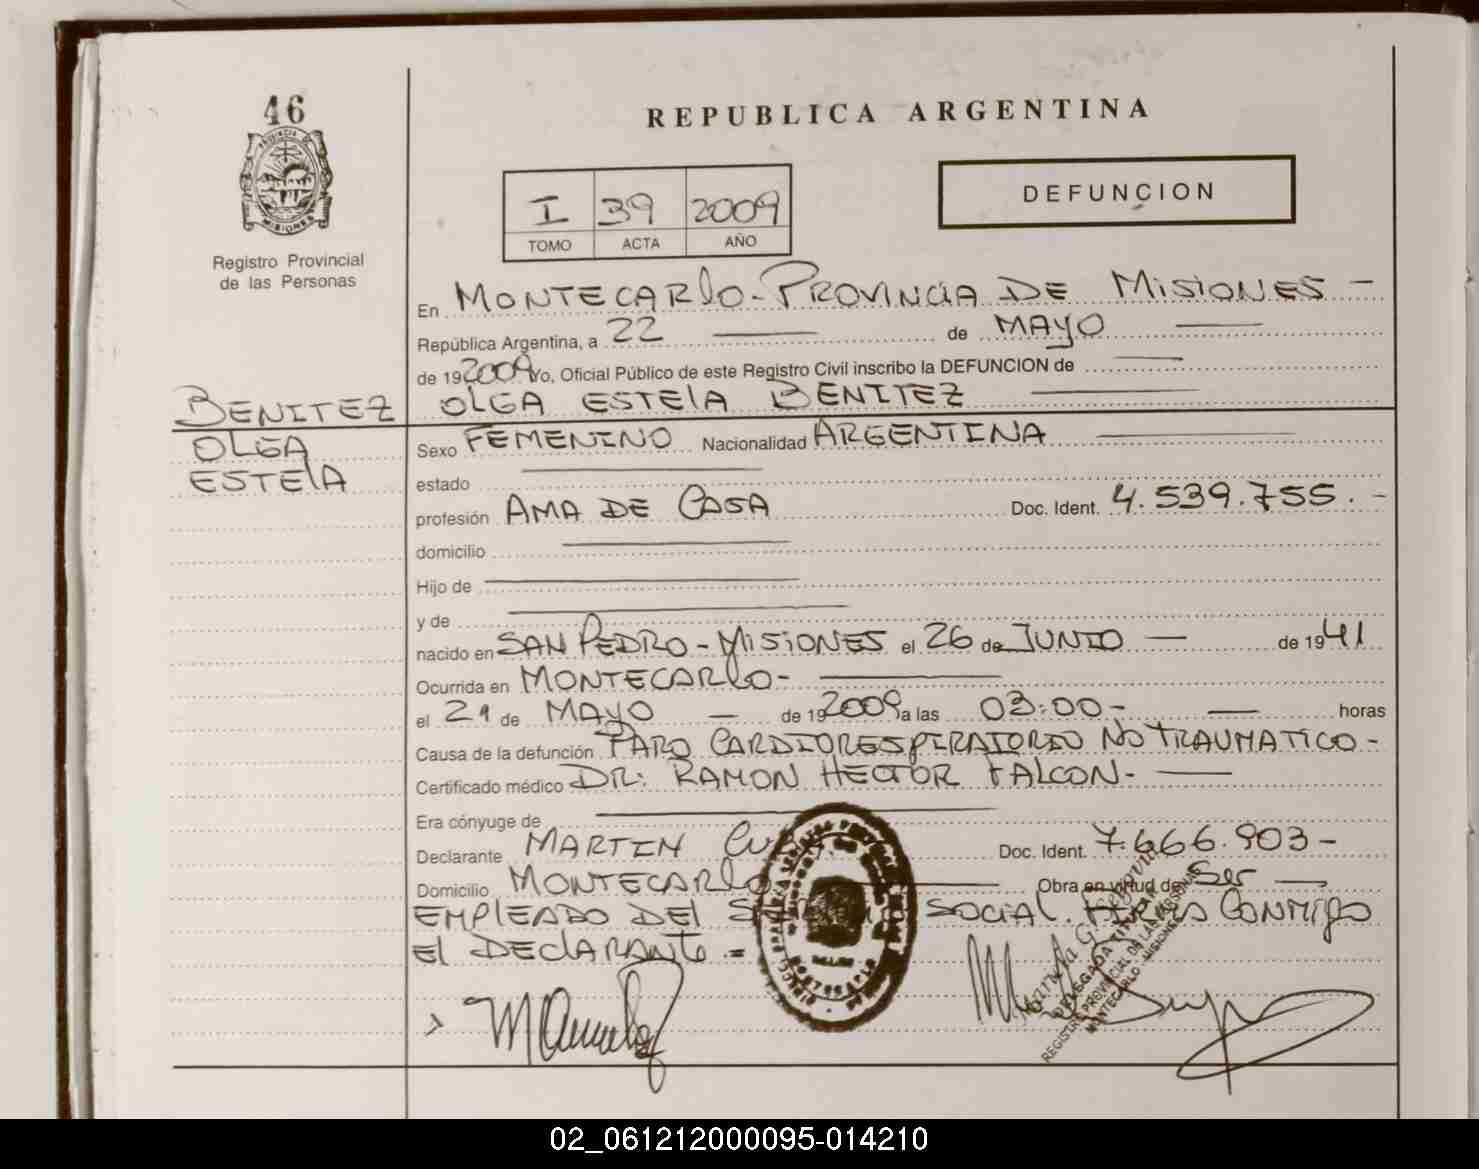 46
REPUBLICA ARGENTINA
PROVINCIA DE
MISIONES
Registro Provincial
de las Personas
I 39 2009
TOMO ACTA AÑO
DEFUNCION
En MONTECARlO - PROVINCIA DE MISIONES -
República Argentina, a 22 de MAYO
de 192009 Yo, Oficial Público de este Registro Civil inscribo la DEFUNCION de
BENITEZ OLGA ESTElA BENITEZ
OLGA Sexo FEMENINO Nacionalidad ARGENTINA
ESTElA estado
profesión AMA DE CASA Doc. Ident. 4.539.755.-
domicilio
Hijo de
y de
nacido en SAN PEDRO - MISIONES el 26 de JUNIO de 1941
Ocurrida en MONTECARlO-
el 21 de MAYO de 192009 a las 03:00- horas
Causa de la defunción PARO CARDIORESPIRATORIO NO TRAUMATICO -
Certificado médico DR: RAMON HECTOR FALCON-
Era cónyuge de
Declarante MARTIN Doc. Ident. 7.666.903-
Domicilio MONTECARlO Obra en virtud de Ser
EMPlEADO DEl SOCIAL. FIRMA CONMIGO
El DEClARANTE =
DELEGADA TITULAR
REGISTRO PROVINCIAL DE LAS PERSONAS
MONTECARLO - MISIONES
02_061212000095-014210